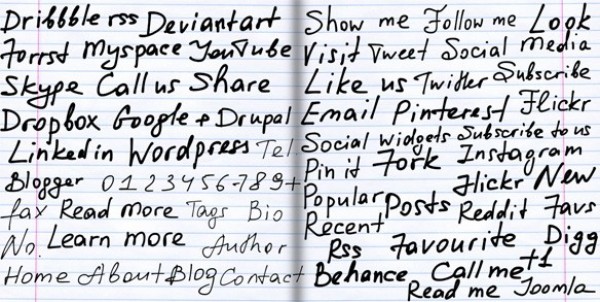 Dribbble rss Deviantart
Forrst Myspace YouTube
Skype Call us Share
Dropbox Google + Drupal
Linkedin Wordpress Tel.
Blogger 0123456-789+
fax Read more Tags Bio
No. Learn more Author
Home About Blog Contact
Show me Follow me Look
Visit Tweet Social media
Like us Twitter Subscribe
Email Pinterest Flickr
Social widgets Subscribe to us
Pin it Fork Instagram
Flickr New
Popular Posts Reddit Favs
Recent
Rss Favourite Digg
Behance Call me +1
Read me Joomla